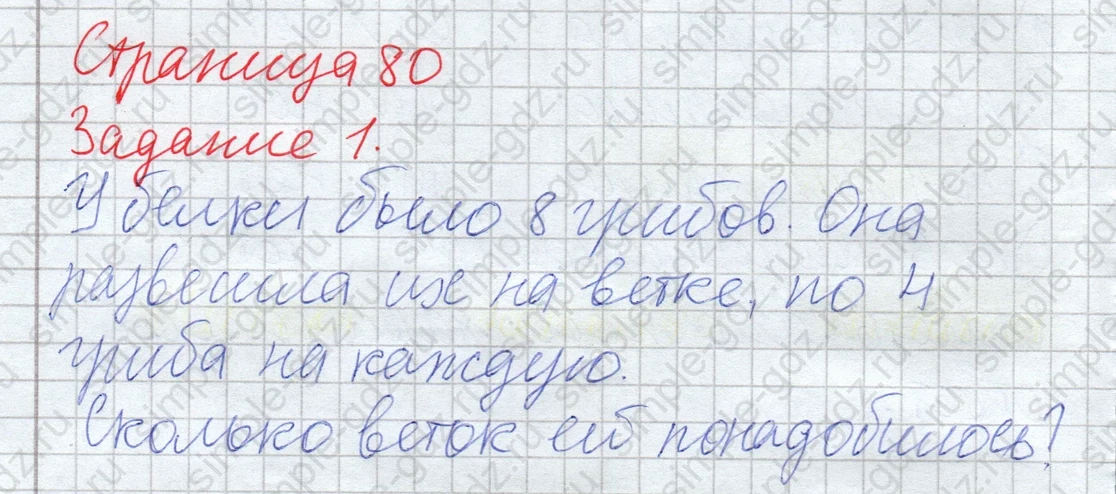 Страница 80
Задание 1.
У белки было 8 грибов. Она
развешила их на ветке, по 4
гриба на каждую.
Сколько веток ей понадобилось?